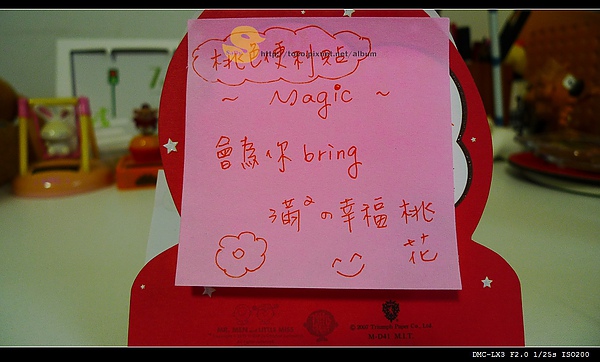 桃色便利貼
~ Magic ~
會為你 bring
滿²の幸福桃
花
DMC-LX3 F2.0 1/25s ISO200